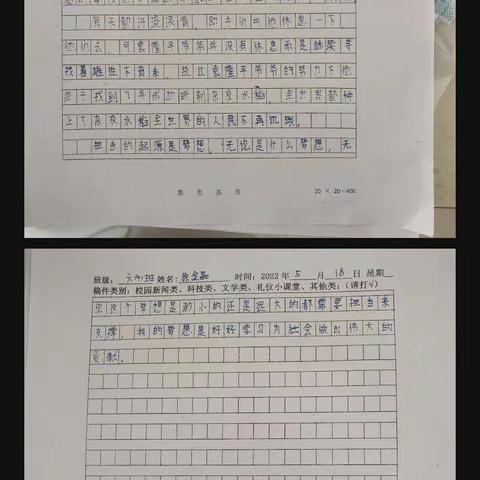 每天都汗流浃背，助手们也他休息一下，
他们去，可袁隆平爷爷并没有休息而是继续寻
找着雄性不育系，经过袁隆平爷爷的努力下他
终于找到了并成功研制杂交水稻，全世界都种
上了杂交水稻全世界的人民不再饥饿。
担当的起源是梦想，无论是什么梦想，无
第 页 共 页
20 × 20=400
班级： 六(4)班 姓名： 时间：2022 年 5 月 18 日 星期
稿件类别：校园新闻类、科技类、文学类、礼仪小课堂、其他类：(请打√)
论这个梦想是渺小的还是远大的都需要担当来
支撑，我的梦想是好好学习为社会做出伟大的
贡献。